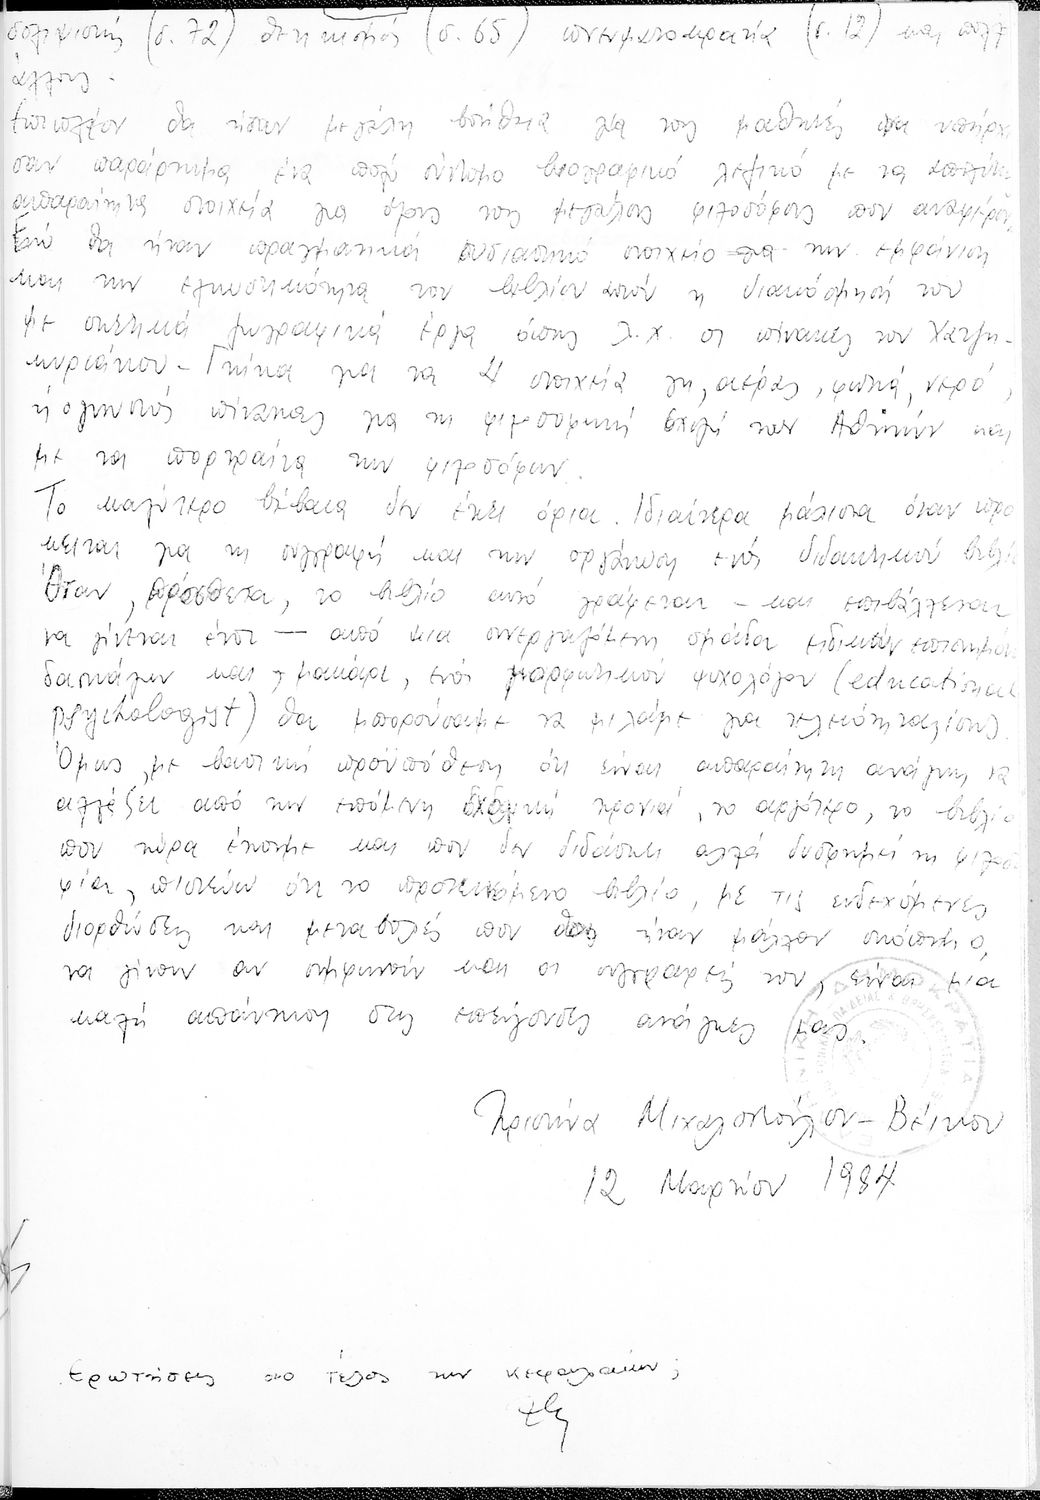 σολιψισμός (σ. 72) θετικισμός (σ. 65) πνευματοκρατία (σ. 12) και πολλ
άλλους.
Επιπλέον θα ήταν μεγάλη βοήθεια για τους μαθητές να υπήρχ
σαν παράρτημα ένα πολύ σύντομο βιογραφικό λεξικό με τα εντελώς
απαραίτητα στοιχεία για όλους τους μεγάλους φιλοσόφους που αναφέρον
Ενώ θα ήταν πραγματικά ουσιαστικό στοιχείο για την εμφάνιση
και την ελκυστικότητα του βιβλίου αυτού η διακόσμησή του
με σχετικά ζωγραφικά έργα όπως λ.χ. οι πίνακες του Χατζη-
κυριάκου-Γκίκα για τα 4 στοιχεία γη, αέρας, φωτιά, νερό,
ή ο γνωστός πίνακας για τη φιλοσοφική σχολή των Αθηνών και
με τα πορτραίτα των φιλοσόφων.
Το καλύτερο βέβαια δεν έχει όρια. Ιδιαίτερα μάλιστα όταν πρό
κειται για τη συγγραφή και την οργάνωση ενός διδακτικού βιβλί
Όταν, πρόσθετα, το βιβλίο αυτό γράφεται - και επιβάλλεται
να γίνεται έτσι - από μια συνεργαζόμενη ομάδα ειδικών επιστημόν
δασκάλων και, μακάρι, ενός μορφωτικού ψυχολόγου (educational
psychologist) θα μπορούσαμε να μιλάμε για τελειότητα ίσως.
Όμως, με βασική προϋπόθεση ότι είναι απαραίτητη ανάγκη να
αλλάξει από την επόμενη σχολική χρονιά, το αργότερο, το βιβλίο
που τώρα έχουμε και που δεν διδάσκει αλλά δυσφημεί τη φιλοσο
φία, πιστεύω ότι το προτεινόμενο βιβλίο, με τις ενδεχόμενες
διορθώσεις και μεταβολές που θα ήταν μάλλον σκόπιμο
να γίνουν αν συμφωνούν και οι συγγραφείς του, είναι μια
καλή απάντηση στις επείγουσες ανάγκες μας.
Χριστίνα Μιχαλοπούλου-Βέικου
12 Μαρτίου 1984
Ερωτήσεις στο τέλος των κεφαλαίων;